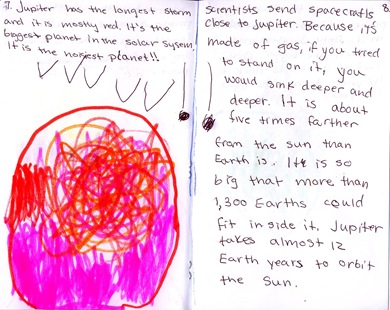 7. Jupiter has the longest storm
and it is mostly red. It's the
biggest planet in the solar system.
It is the noisiest planet!!
scientists send spacecrafts 8
close to Jupiter. Because it's
made of gas, if you tried
to stand on it, you
would sink deeper and
deeper. It is about
five times farther
from the sun than
Earth is. It is so
big that more than
1,300 Earths could
fit inside it. Jupiter
takes almost 12
Earth years to orbit
the Sun.